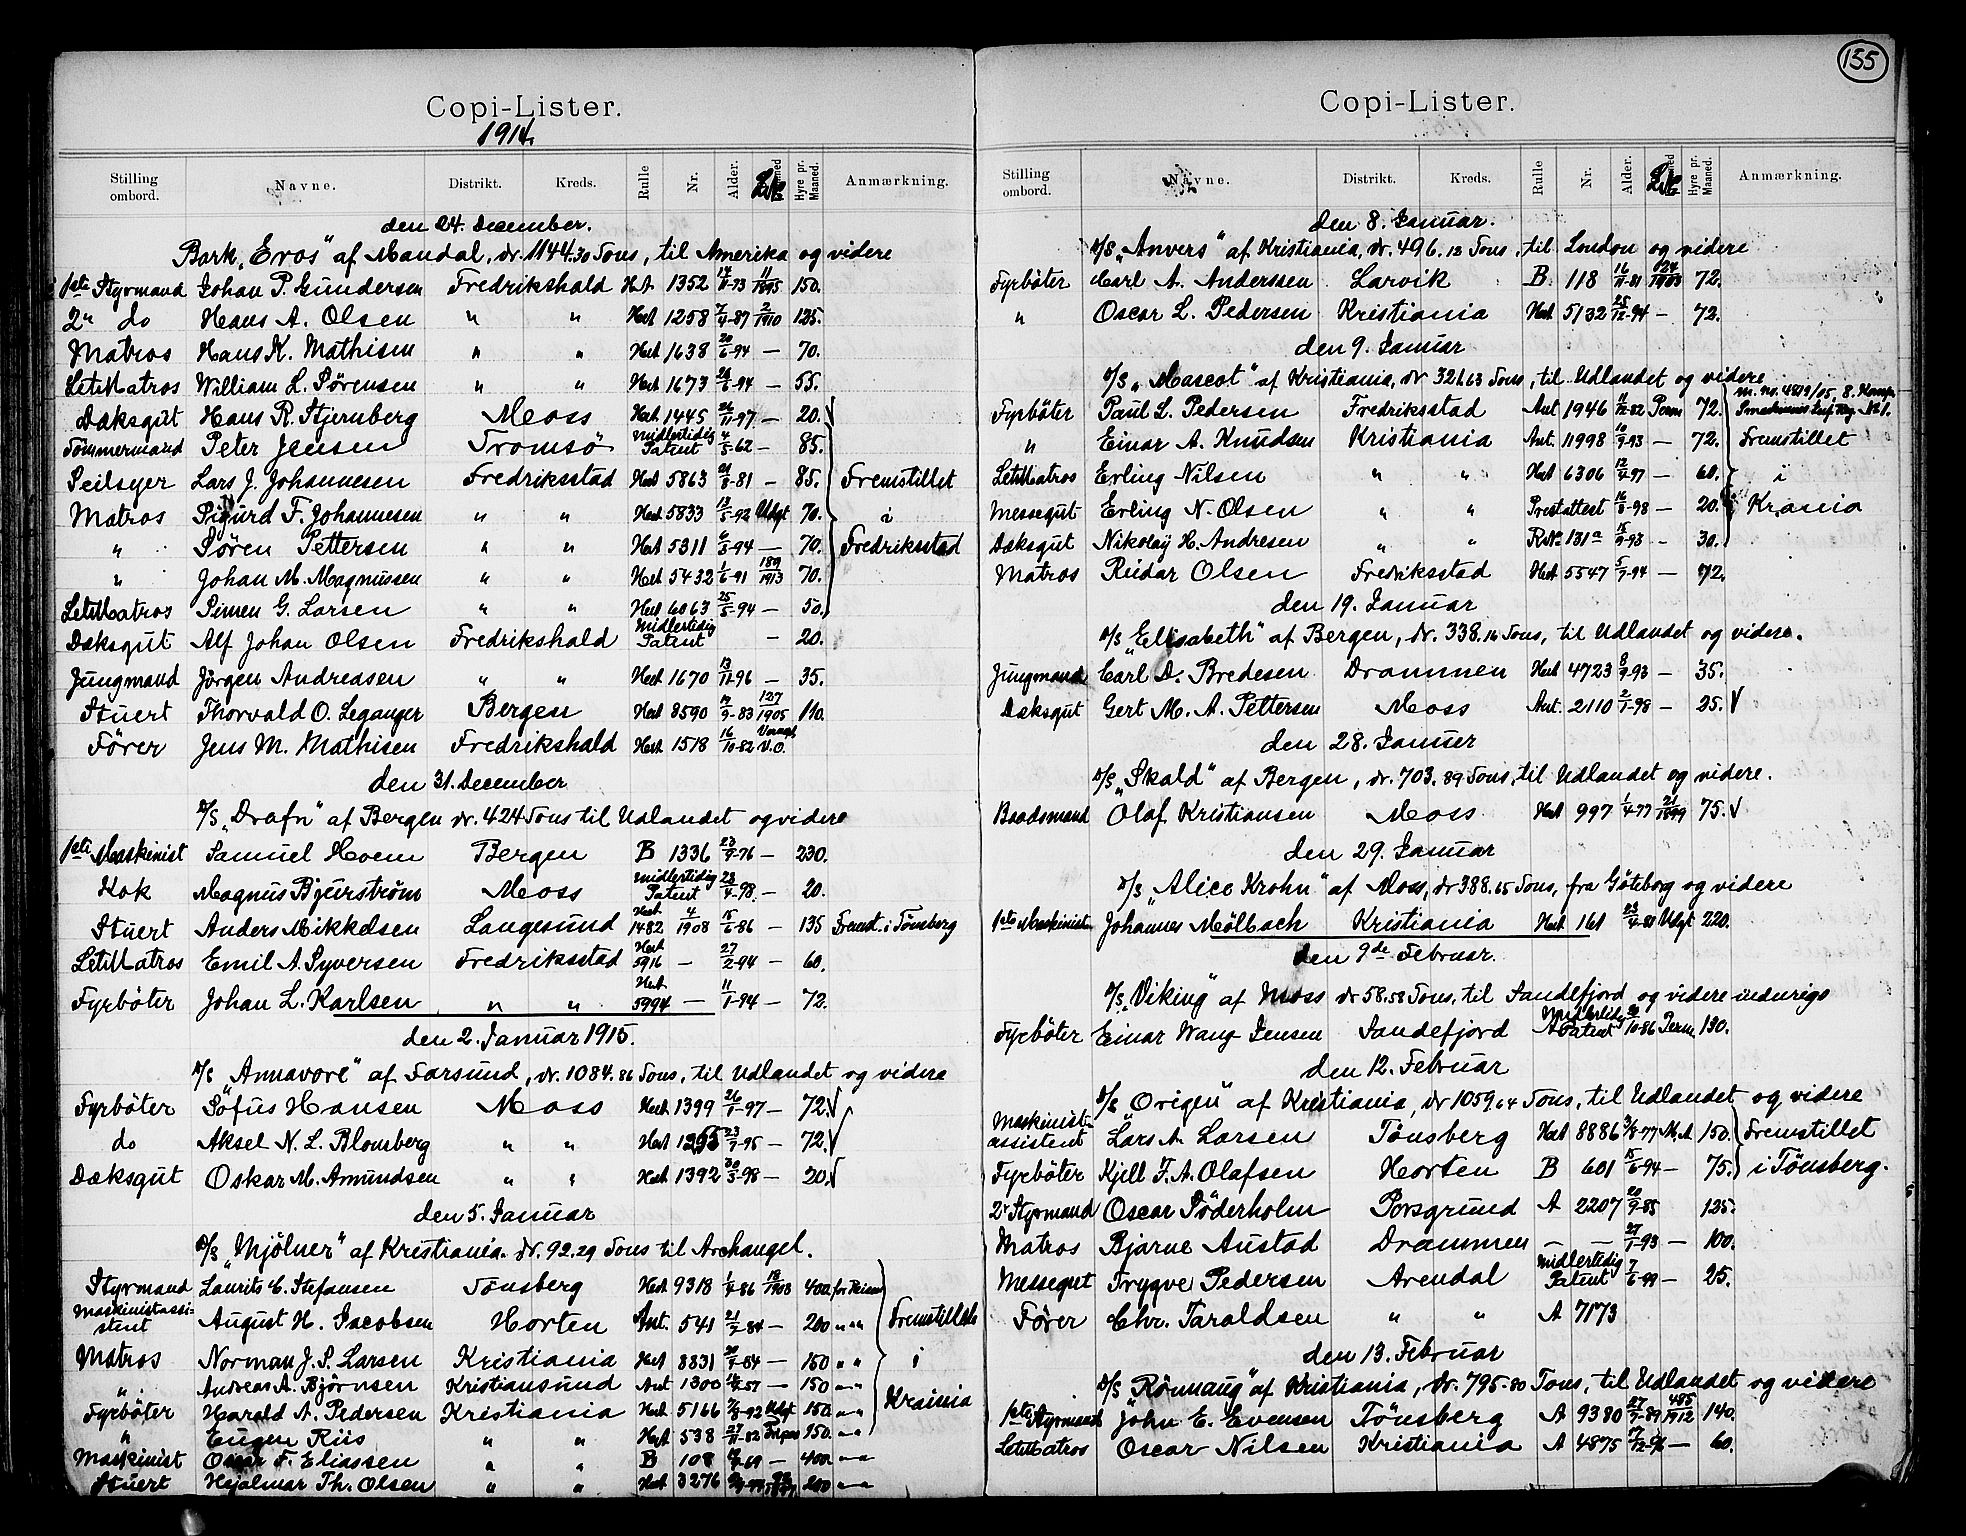 Copi-Lister.
1914.
Stilling ombord. Navne. Distrikt. Kreds. Rulle Nr. Alder. Hyre pr. Maaned. Anmærkning.
den 24. December.
Bark "Eros" af Mandal, dr. 1144.30 Tons, til Amerika og videre
1ste Styrmand Johan P. Gundersen Fredrikshald Het 1352 150.
2n do Hans A. Olsen " " Het 1258 7/4-87 2/1910 125.
Matros Hans K. Mathisen " " Het 1638 20/6-94 — 70.
LetMatros William L. Sørensen " " Het 1673 — 55.
Dæksgut Hans R. Stjernberg Moss Het 1445 — 20.
Tømmermand Peter Jensen Tromsö Midlertidig Patent 4/5-62 — 85.
Seilsyer Lars J. Johannesen Fredriksstad Het 5863 — 85. Fremstillet
Matros Sigurd F. Johannesen " " Het 5833 13/5-92 Udgt 70. i
" Søren Pettersen " " Het 5311 — 70. Fredriksstad
" Johan M. Magnussen " " Het 5432 1/6-91 189/1913 70.
LetMatros Simen G. Larsen " " Het 6063 25/5-94 — 50.
Dæksgut Alf Johan Olsen Fredrikshald Midlertidig Patent — 20.
Jungmand Jörgen Andreasen " " Het 1670 13/11-96 — 35.
Stuert Thorvald O. Leganger Bergen Het 8590 127/1905 110.
Fører Jens M. Mathisen Fredrikshald Het 1518 16/10-82 V.O.
den 31. December
D/S "Drafn" af Bergen dr. 424 Tons til Udlandet og videre
1ste Maskinist Samuel Hoem Bergen B 1336 23/9-76 — 230.
Kok Magnus Bjurström Moss Midlertidig Patent 23/4-98. — 20.
Stuert Anders Mikkelsen Langesund Het 1482 4/1908 15/6-86 — 135 Fremst. i Tönsberg
LetMatros Emil A. Syversen Fredriksstad Het 5916 — 27/2-94 — 60.
Fyrbøter Johan L. Karlsen " " Het 5994 — 11/1-94 — 72.
den 2. Januar 1915.
D/S "Annavore" af Farsund, dr. 1084.86 Tons, til Udlandet og videre
Fyrbøter Sofus Hansen Moss Het 1399 26/1-97 — 72.
do Aksel N. L. Blomberg " " Het 23/9-95 — 72.
Dæksgut Oskar M. Amundsen " " Het 1392 30/3-98 — 20.
den 5. Januar
D/S "Mjölner" af Kristiania. dr. 92.29 Tons til Archangel.
Styrmand Laurits C. Stefansen Tönsberg Het 9318 400
Maskinistassistent August H. Jacobsen Horten Ant. 541 — 200 " " Fremstillede
Matros Norman J. S. Larsen Kristiania Het 8831 — 150 " " i
" Andreas A. Bjørnsen Kristiansund Ant 1300 — 150 " " Krainia
Fyrbøter Harald A. Pedersen Kristiania Het 5166 Udgt 150 " "
" Eugen Riis " " Het 538 150 " "
Maskinist Oscar F. Eliassen " " B 108 — 400 " "
Stuert Hjalmar Th. Olsen " " Het 3276 200 " "
155
Copi-Lister.
Stilling ombord. Navne. Distrikt. Kreds. Rulle Nr. Alder. Hyre pr. Maaned. Anmærkning.
den 8. Januar.
D/S "Anvers" af Kristiania, dr. 496.12 Tons, til London og videre
Fyrbøter Carl A. Anderssen Larvik B 118 16/11-81 24/1903 72.
" Oscar L. Pedersen Kristiania Het 5132 25/12-94 — 72.
den 9. Januar
D/S "Mascot" af Kristiania, dr 321.63 Tons, til Udlandet og videre
Fyrbøter Paul L. Pedersen Fredriksstad Ant 1946 72.
" Einar A. Knudsen Kristiania Ant. 11998 10/9-93 — 72. Fremstillet
LetMatros Erling Nilsen " " Het 6306 12/4-97 — 60. i
Messegut Erling N. Olsen " " Prestattest 16/8-98 — 20. Krania
Dæksgut Nikolaÿ H. Andresen " " 131a 15/9-93 — 30.
Matros Reidar Olsen Fredriksstad Het 5547 5/7-94 — 72.
den 19. Januar
D/S "Elisabeth" af Bergen, dr. 338.16 Tons, til Udlandet og videre.
Jungmand Carl D. Bredesen Drammen Het 4723 8/9-93 — 35.
Dæksgut Gert M. A. Pettersen Moss Ant. 2110 2/1-98 — 25.
den 28. Januer
D/S "Skald" af Bergen, dr. 703.89 Tons, til Udlandet og videre.
Baadsmand Olaf Kristiansen Moss Het 997 1/4-77 21/1899 75.
den 29. Januar
D/S "Alice Krohn" af Moss, dr 388.65 Tons, fra Göteborg og videre
1ste Maskinist Johannes Mölbach Kristiania Het 161 Udgt 220.
den 9de Februar.
D/S "Viking" af Moss dr 58.58 Tons, til Sandefjord og videre indenrigs
Fyrbøter Einar Wang Jensen Sandefjord Midlertidig Patent 10-86 130.
den 12. Februar
D/S "Origen" af Kristiania, dr 1059.64 Tons, til Udlandet og videre
Maskinistassistent Lars A. Larsen Tönsberg Het 8886 M.A 150. Fremstillet
Fyrbøter Kjell F. A. Olafsen Horten B 601 15/6-94 — 75. i Tönsberg.
2n Styrmand Oscar Söderholm Porsgrund A 2207 20/9-85 125.
Matros Bjarne Austad Drammen — — 27/1-93 — 100.
Messegut Trygve Pedersen Arendal Midlertidig Patent 7/6-99 — 25.
Fører Chr. Taraldsen " " A 7173
den 13. Februar
D/S "Rönnaug" af Kristiania, dr. 795.80 Tons, til Udlandet og videre
1ste Styrmand John E. Evensen Tönsberg A 9380 27/9-89 485/1912 140.
LetMatros Oscar Nilsen Kristiania A 4875 17/12-96 — 60.